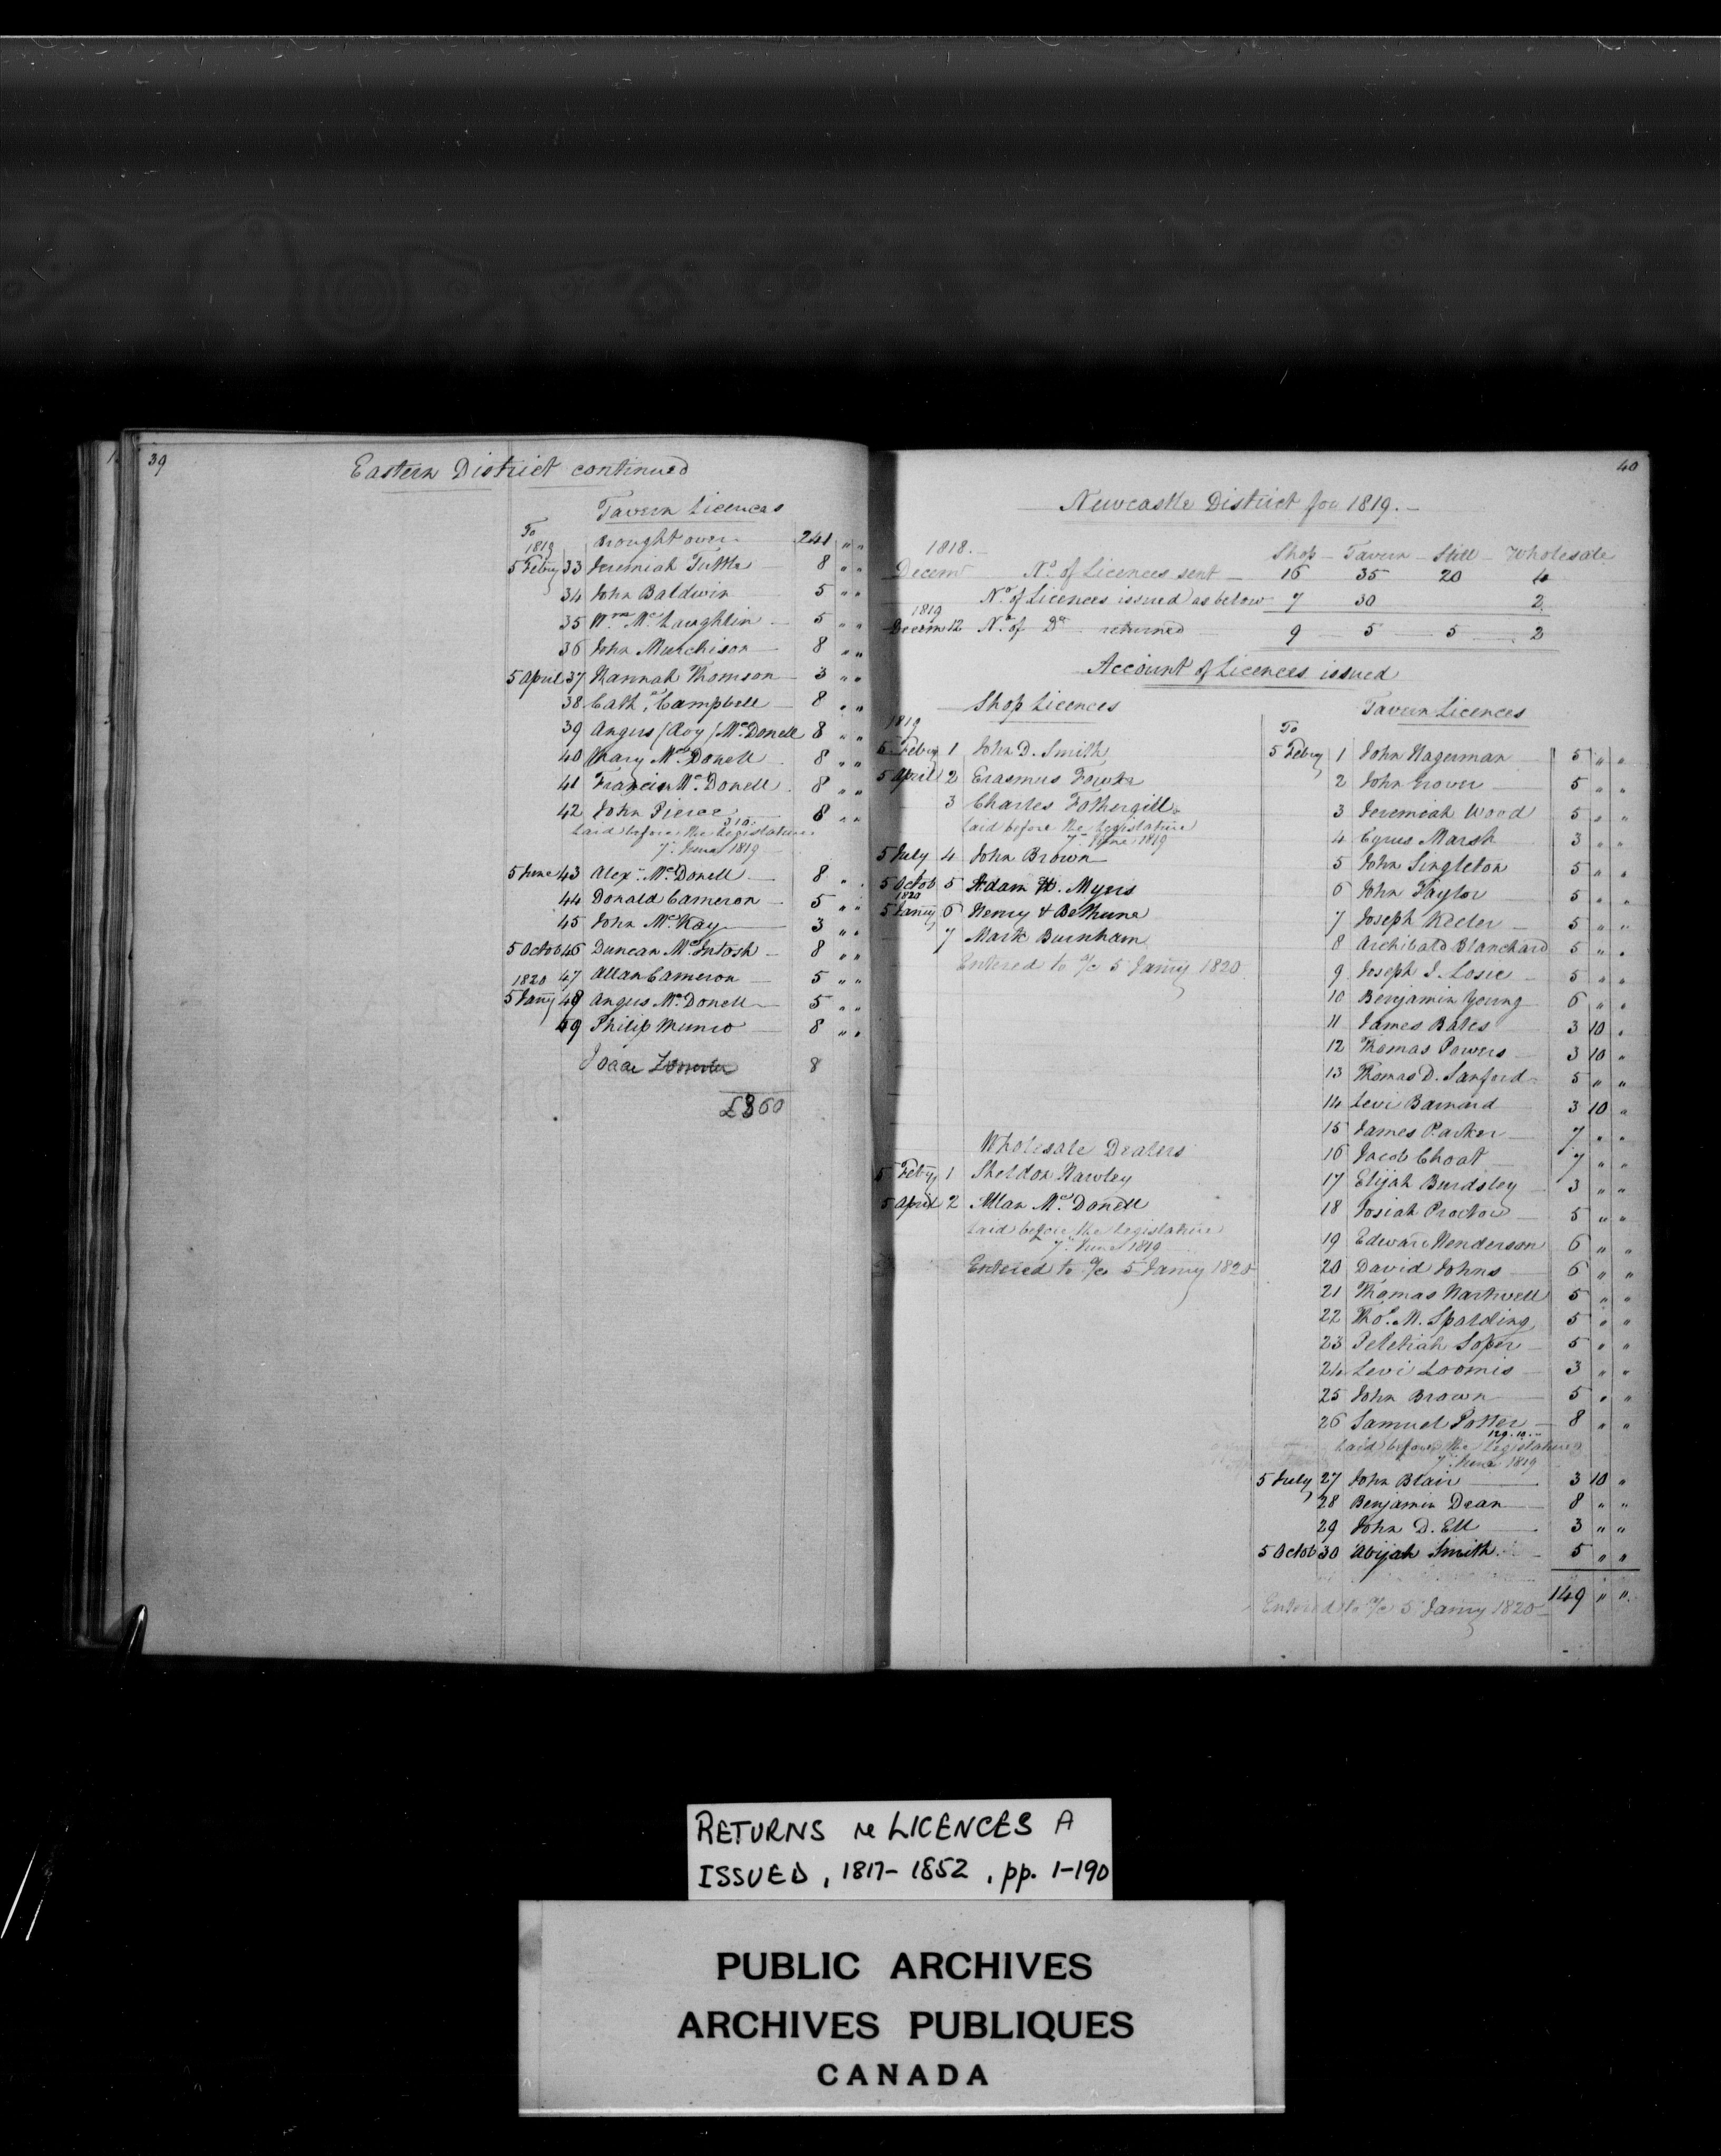 39
Eastern District continued
Tavern Licences
To
1819 brought over 241 " "
5 Feby 33 Jeremiah Tuttle 8 " "
34 John Baldwin 5 " "
35 Wm McLaughlin 5 " "
36 John Murchison 8 " "
5 April 37 Hannah Thomson 3 " "
38 Cath. Campbell 8 " "
39 Angus (Roy) McDonell 8 " "
40 Mary McDonell 8 " "
41 Francis McDonell 8 " "
42 John Pierce 8 " "
310
Laid before the Legislature
7th June 1819
5 June 43 Alexr McDonell 8 " "
44 Donald Cameron 5 " "
45 John McKay 3 " "
5 Octob 46 Duncan McIntosh 8 " "
1820 47 Allan Cameron 5 " "
5 Jany 48 Angus McDonell 5 " "
49 Philip Munro 8 " "
Isaac 8
£360
40
Newcastle District for 1819.
1818. Shop Tavern Still Wholesale
Decemr No. of Licences sent 16 35 20 4
No. of Licences issued as below 7 30 2
1819
Decem 12 No. of Do returned 9 5 5 2
Account of Licences issued
Shop Licences
1819
5 Feby 1 John D. Smith
5 April 2 Erasmus Fowke
3 Charles Fothergill
Laid before the Legislature
7th June 1819
5 July 4 John Brown
5 Octob 5 Adam H. Myers
1820
5 Jany 6 Henry & Bethune
7 Mark Burnham
Entered to a/c 5 Jany 1820
Wholesale Dealers
5 Feby 1 Sheldon Hawley
5 April 2 Allan McDonell
Laid before the Legislature
7th June 1819
Entered to a/c 5 Jany 1820
Tavern Licences
To
5 Feby 1 John Hagerman 5 " "
2 John Grover 5 " "
3 Jeremiah Wood 5 " "
4 Cyrus Marsh 3 " "
5 John Singleton 5 " "
6 John Taylor 5 " "
7 Joseph Keeler 5 " "
8 Archibald Blanchard 5 " "
9 Joseph I. Losie 5 " "
10 Benjamin Young 6 " "
11 James Bates 3 10 "
12 Thomas Powers 3 10 "
13 Thomas D. Sanford 5 " "
14 Levi Barnard 3 10 "
15 James Parker 7 " "
16 Jacob Choat 7 " "
17 Elijah Burdsley 3 " "
18 Josiah Proctor 5 " "
19 Edward Henderson 6 " "
20 David Johns 6 " "
21 Thomas Hartwell 5 " "
22 Thos. N. Spalding 5 " "
23 Peletiah Soper 5 " "
24 Levi Loomis 3 " "
25 John Brown 5 " "
26 Samuel Potter 8 " "
129.10.
Laid before the Legislature
7th June 1819
5 July 27 John Blair 3 10 "
28 Benjamin Dean 8 " "
29 John D. Ell 3 " "
5 Octob 30 Abijah Smith 5 " "
149 " "
Entered to a/c 5 Jany 1820
RETURNS re LICENCES A
ISSUED, 1817-1852, pp. 1-190
PUBLIC ARCHIVES
ARCHIVES PUBLIQUES
CANADA